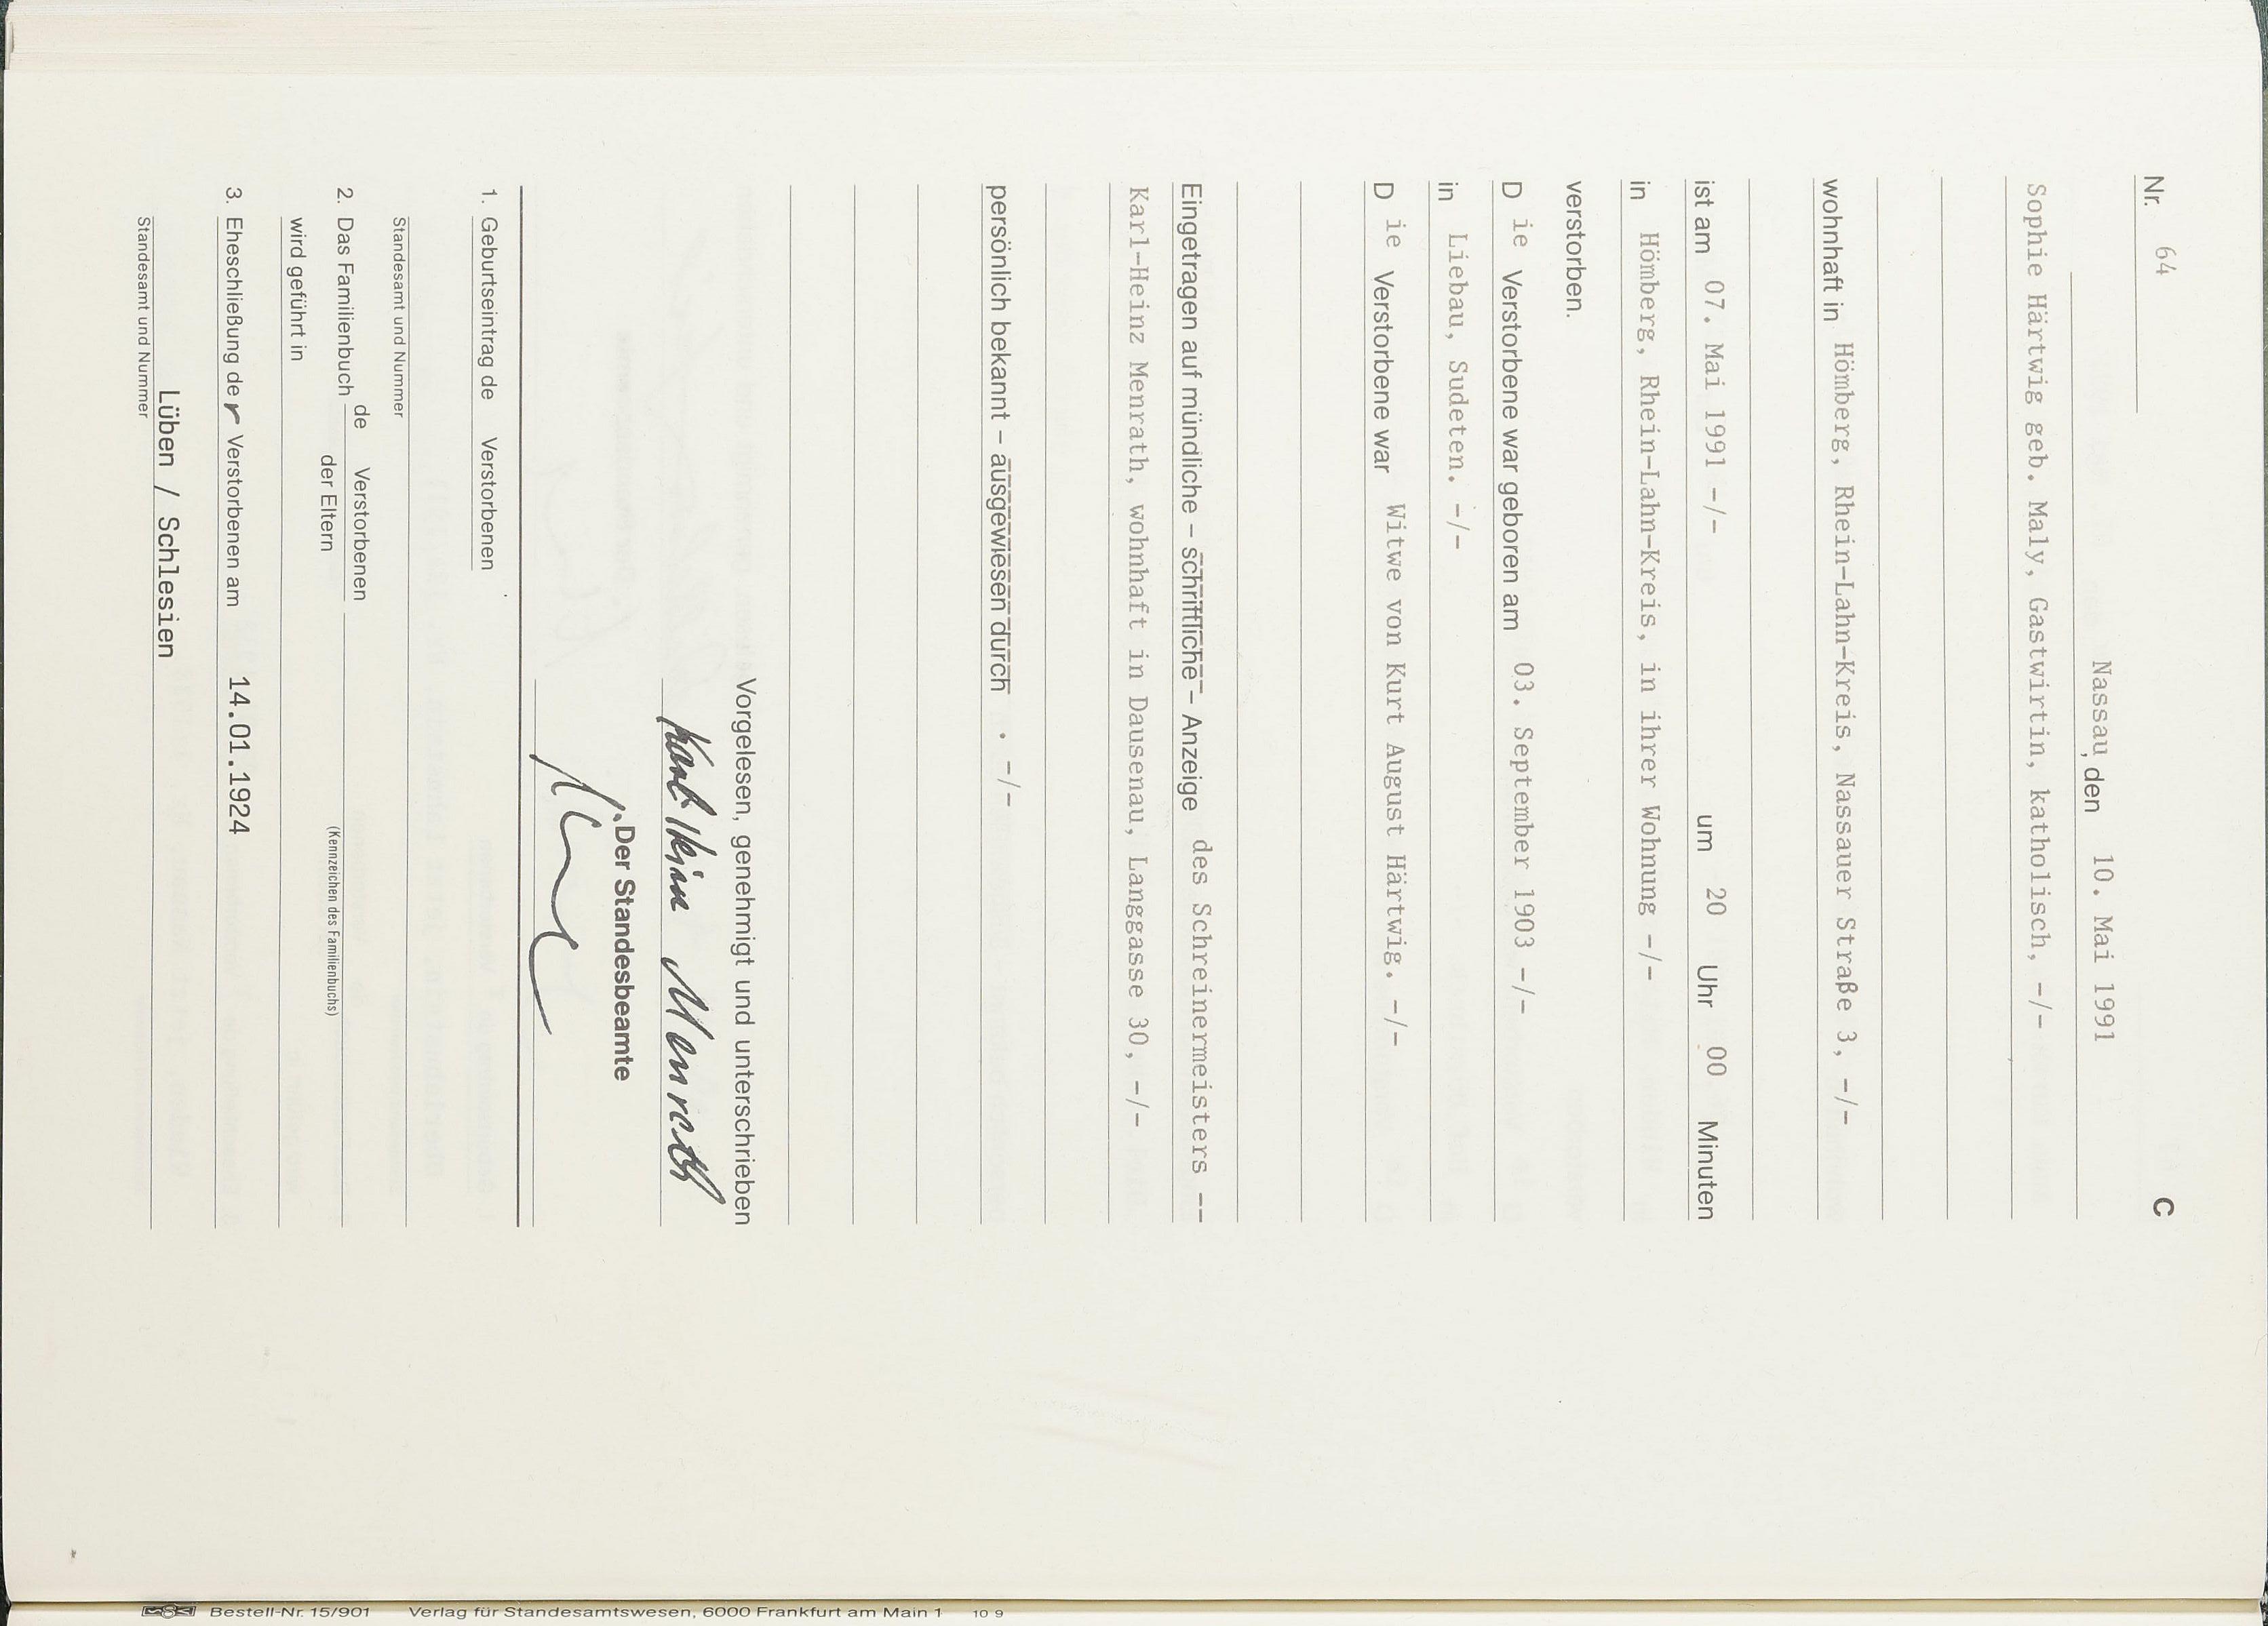 Nr. 64 C
Nassau, den 10. Mai 1991
Sophie Härtwig geb. Maly, Gastwirtin, katholisch, -/-
wohnhaft in Hömberg, Rhein-Lahn-Kreis, Nassauer Straße 3, -/-
ist am 07. Mai 1991 -/- um 20 Uhr 00 Minuten
in Hömberg, Rhein-Lahn-Kreis, in ihrer Wohnung -/-
verstorben.
D ie Verstorbene war geboren am 03. September 1903 -/-
in Liebau, Sudeten. -/-
D ie Verstorbene war Witwe von Kurt August Härtwig. -/-
Eingetragen auf mündliche – schriftliche – Anzeige des Schreinermeisters --
Karl-Heinz Menrath, wohnhaft in Dausenau, Langgasse 30, -/-
persönlich bekannt – ausgewiesen durch . -/-
Vorgelesen, genehmigt und unterschrieben
Karl Heinz Menrath
Der Standesbeamte
1. Geburtseintrag de Verstorbenen
Standesamt und Nummer
2. Das Familienbuch de Verstorbenen
der Eltern
(Kennzeichen des Familienbuchs)
wird geführt in
3. Eheschließung der Verstorbenen am 14.01.1924
Lüben / Schlesien
Standesamt und Nummer
Bestell-Nr. 15/901 Verlag für Standesamtswesen, 6000 Frankfurt am Main 1 10 9